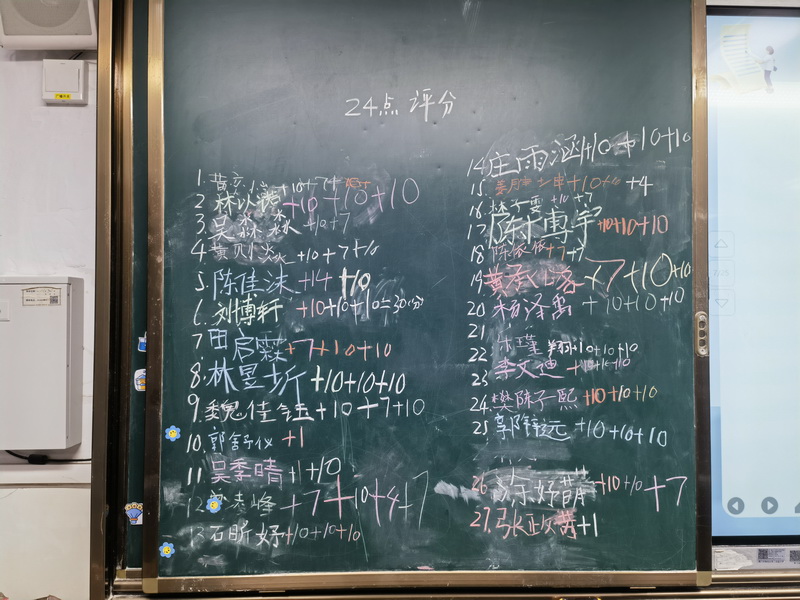 24点评分
1. +10+7+
2. 林以诺+10+10+10
3. 吴森森+10+7
4. 黄则焱+10+7+10
5. 陈佳沫+14+10
6. 刘博轩+10+10+10=30分
7 田启霖+7+10+10
8. 林昱圻+10+10+10
9. 魏佳钰+10+7+10
10. 郭舒仪+1
11 吴季晴+1+10
12 志峰+7+10+4+7
13 石昕妤+10+10+10
14 庄雨涵+10+10+10
15. +10+10+4
16. 林子雯+10+7
17 陈博宇+10+10+10
18 陈依依+7+7
19 黄承洛+7+10+10
20 杨泽禹+10+10+10
21
22 瑾翔+10+10+10
23 李文迪+10+10+10
24. 樊陈子熙+10+10+10
25 郭远+10+10+10
26 余妤萌+10+10+7
27. 张政+1